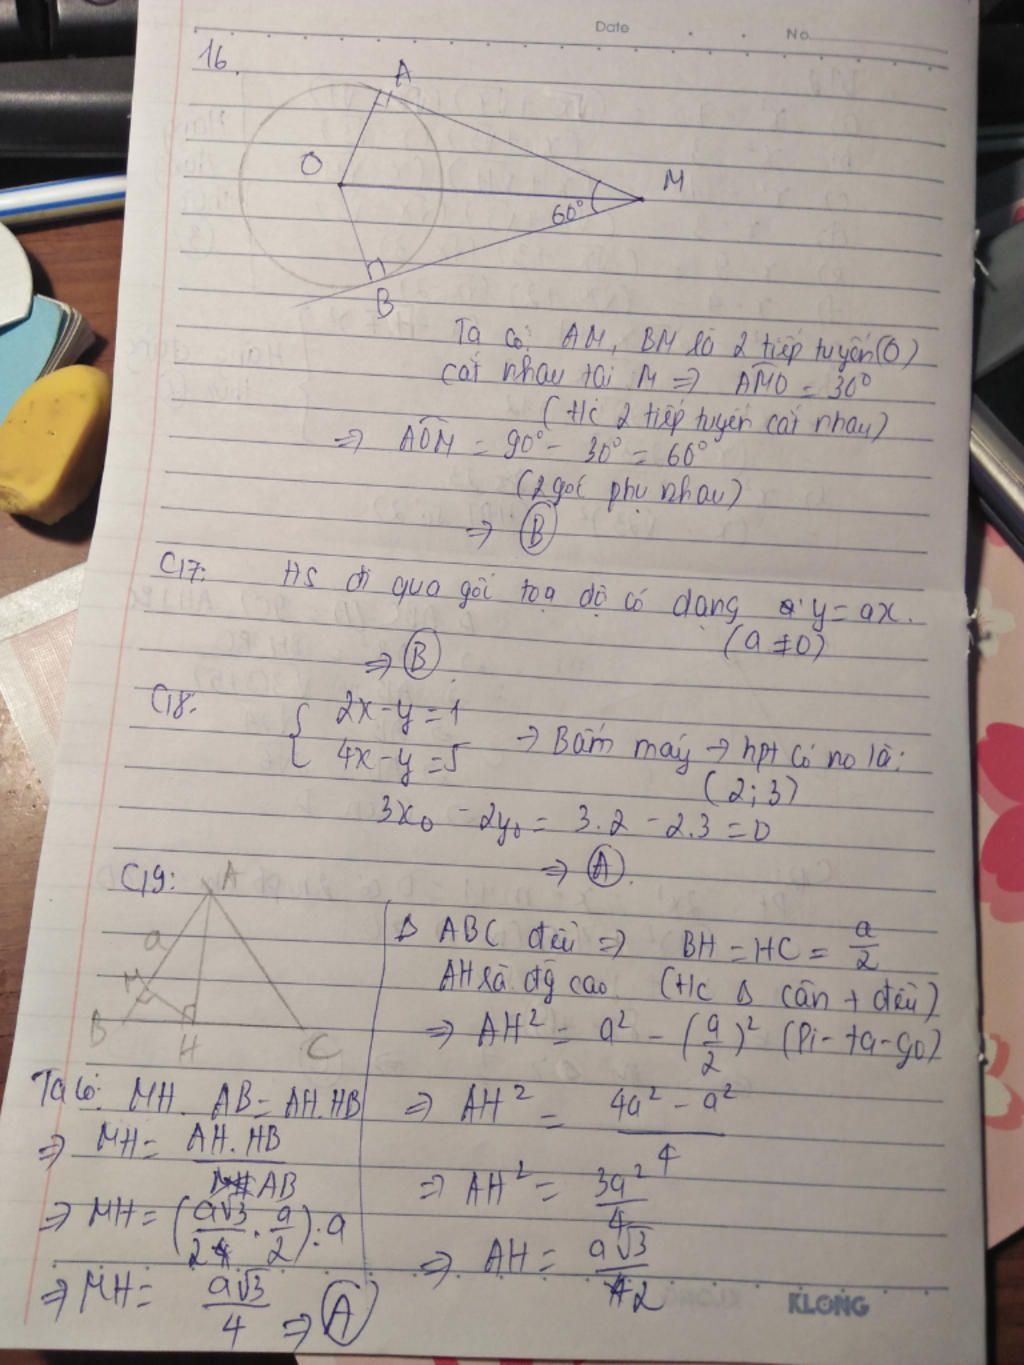 Date No
16.
A
O
M
60°
B
Ta có: AM, BM là 2 tiếp tuyến (O)
cắt nhau tại M => AMO = 30°
(t/c 2 tiếp tuyến cắt nhau)
=> AOM = 90° - 30° = 60°
(2 góc phụ nhau)
=> B
C17: HS đi qua gốc toạ độ có dạng y = ax.
(a ≠ 0)
=> B
C18: { 2x - y = 1
4x - y = 5
→ Bấm máy → hpt có no là:
(2; 3)
3x₀ - 2y₀ = 3.2 - 2.3 = 0
=> A.
C19:
A
a
M
B
H
C
Δ ABC đều => BH = HC = a/2
AH là đg cao (t/c Δ cân + đều)
=> AH² = a² - (a/2)² (Pi-ta-go)
=> AH² = (4a² - a²)/4
=> AH² = 3a²/4
=> AH = a√3/2
Ta có: MH. AB = AH.HB
=> MH = AH.HB/AB
=> MH = (a√3/2 . a/2) : a
=> MH = a√3/4 => A
KLONG